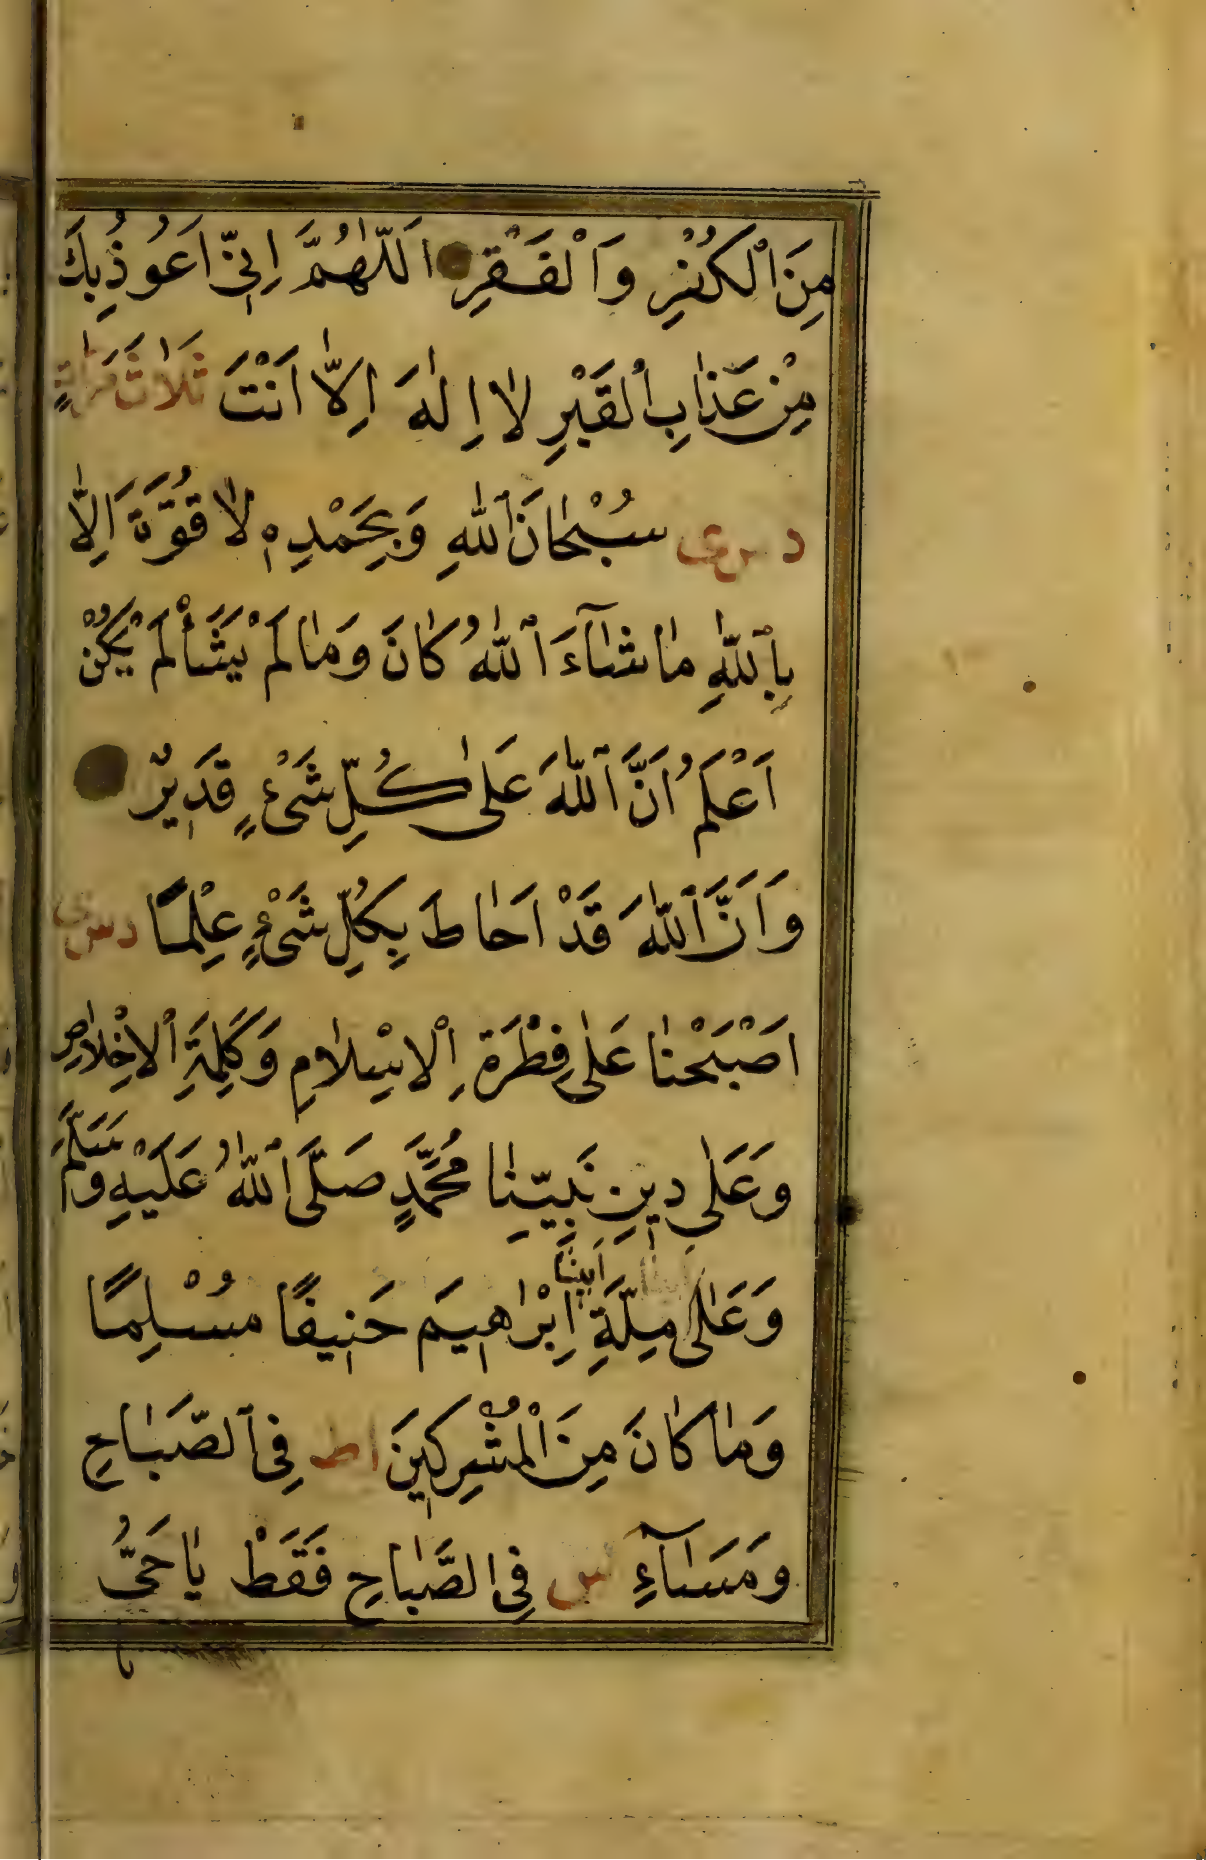 مِنَ الْكُفْرِ وَالْفَقْرِ اَللّٰهُمَّ اِنّٖى اَعُوذُ بِكَ
مِنْ عَذَابِ الْقَبْرِ لَا اِلٰهَ اِلَّا اَنْتَ ثَلَاثَ مَرَّاتٍ
د س ى سُبْحَانَ اللّٰهِ وَبِحَمْدِهٖ لَا قُوَّةَ اِلَّا
بِاللّٰهِ مَا شَآءَ اللّٰهُ كَانَ وَمَا لَمْ يَشَأْ لَمْ يَكُنْ
اَعْلَمُ اَنَّ اللّٰهَ عَلٰى كُلِّ شَىْءٍ قَدٖيرٌ
وَاَنَّ اللّٰهَ قَدْ اَحَاطَ بِكُلِّ شَىْءٍ عِلْمًا د س ى
اَصْبَحْنَا عَلٰى فِطْرَةِ الْاِسْلَامِ وَكَلِمَةِ الْاِخْلَاصِ
وَعَلٰى دٖينِ نَبِيِّنَا مُحَمَّدٍ صَلَّى اللّٰهُ عَلَيْهِ وَسَلَّمَ
وَعَلٰى مِلَّةِ اَبٖينَا اِبْرَاهٖيمَ حَنٖيفًا مُسْلِمًا
وَمَا كَانَ مِنَ الْمُشْرِكٖينَ اط فِى الصَّبَاحِ
وَمَسَآءِ س فِى الصَّبَاحِ فَقَطْ يَا حَىُّ
يا